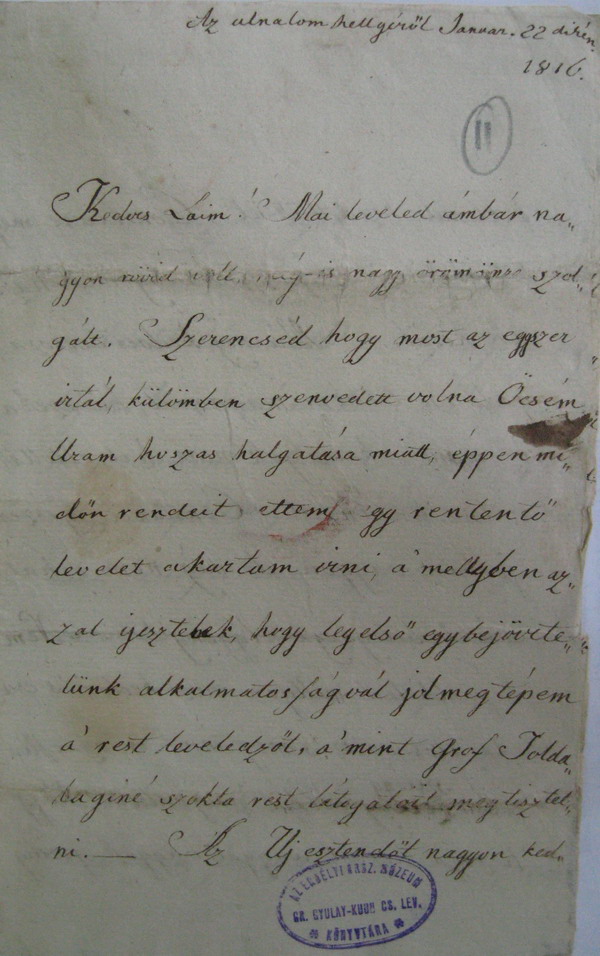 Az unalom hellyéről Januar. 22 dikén
1816.
11
Kedves Laim! Mai leveled ámbár na„
gyon rövid vólt, még-is nagy örömömre szol„
gált. Szerencséd hogy most az egyszer
irtál, külömben szenvedett volna Öcsém
Uram hoszas halgatása miatt, éppen mi„
dőn rendeit ettem egy rententő
levelet akartam irni, a' mellyben az„
zal ijesztelek, hogy legelső egybejövete„
lünk alkalmatosságvál jol megtépem
a' rest leveledzőt, a' mint Grof Tolda„
laginé szokta rest látogatóit megtisztel„
ni. — Az Uj esztendőt nagyon ked„
AZ ERDÉLYI NASZ. MÚZEUM
GR. GYULAY-KUUN CS. LEV.
KÖNYVTÁRA